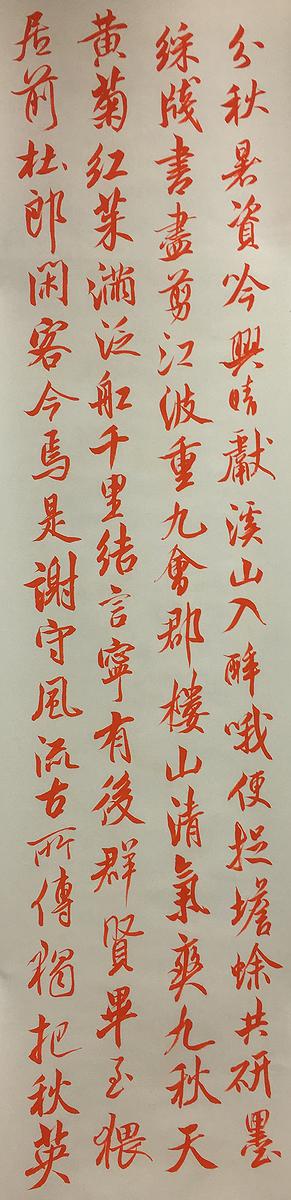 分秋暑資吟興晴獻溪山入醉哦便捉蟾蜍共研墨
綵牋書盡剪江波重九會郡樓山清氣爽九秋天
黄菊紅茱滿泛船千里結言寧有後群賢畢至猥
居前杜郎閑客今焉是謝守風流古所傳獨把秋英